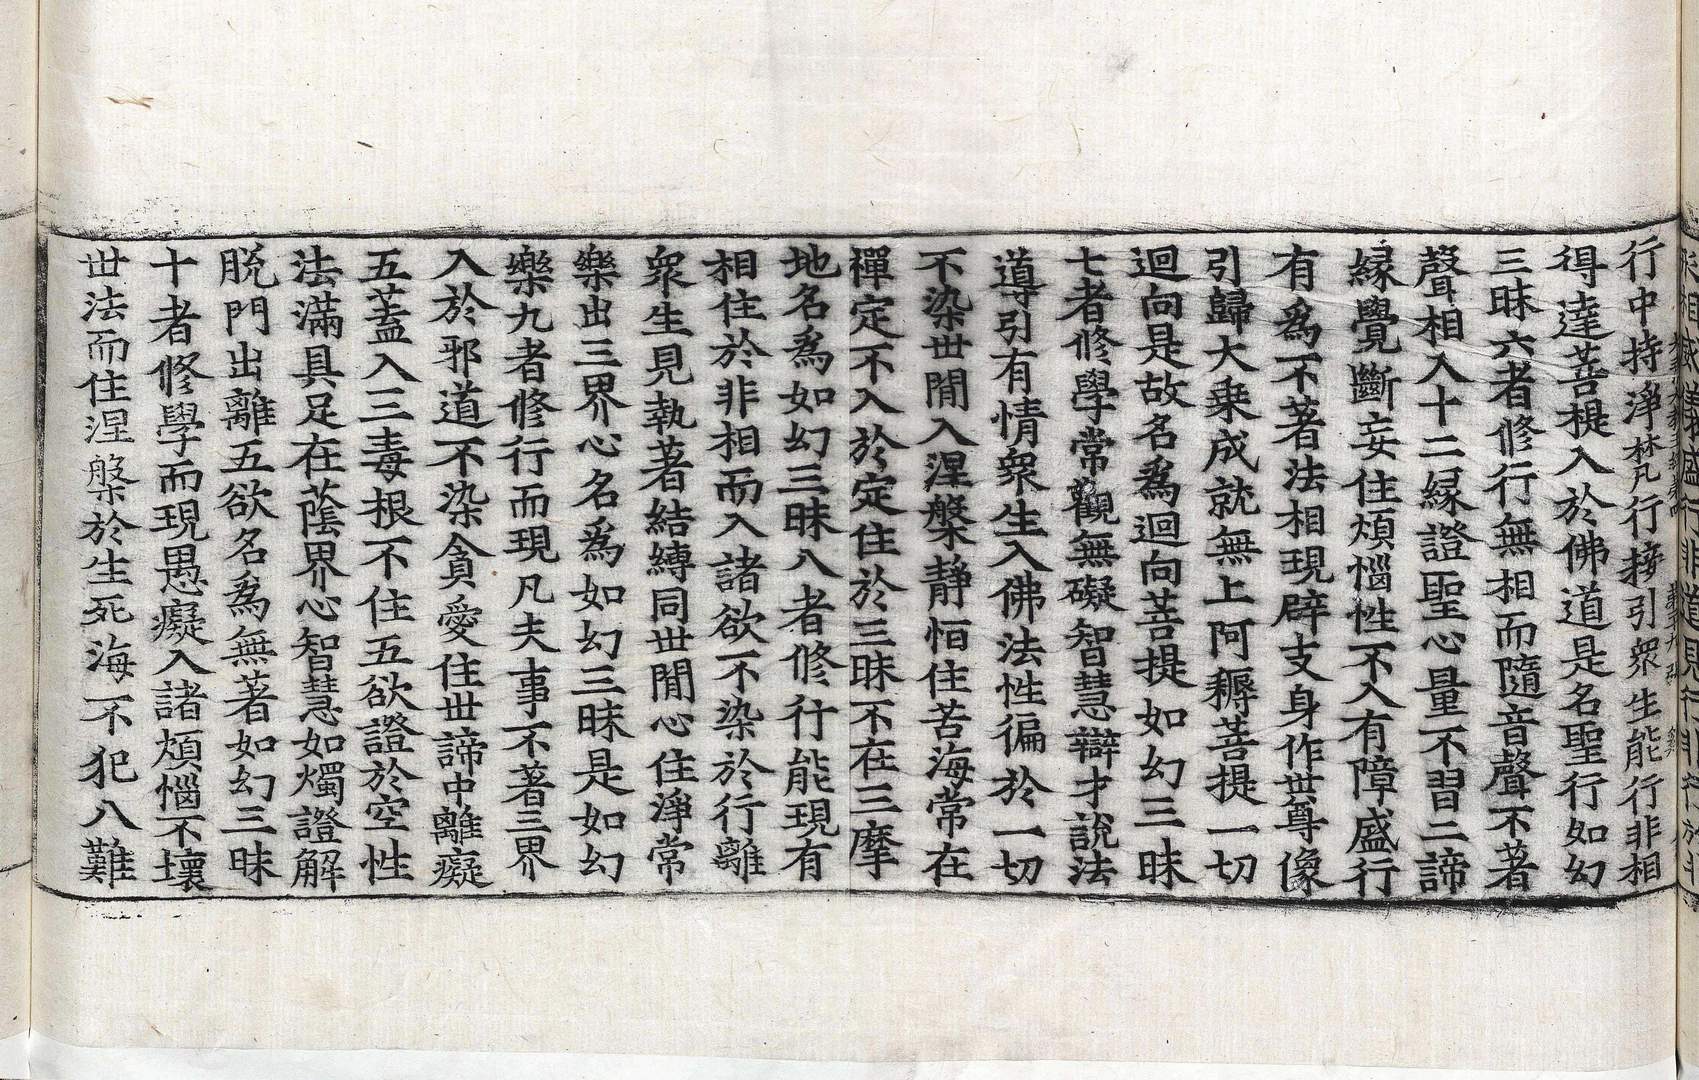 行中持淨梵行接引衆生能行非相
得達菩提入於佛道是名聖行如幻
三昧六者修行無相而隨音聲不著
聲相入十二緣證聖心量不習二諦
緣覺斷妄住煩惱性不入有障盛行
有爲不著法相現辟支身作世尊像
引歸大乘成就無上阿耨菩提一切
迴向是故名爲迴向菩提如幻三昧
七者修學常觀無礙智慧辯才說法
導引有情衆生入佛法性徧於一切
不染世閒入涅槃靜恒住苦海常在
禪定不入於定住於三昧不在三摩
地名爲如幻三昧八者修行能現有
相住於非相而入諸欲不染於行離
衆生見執著結縛同世閒心住淨常
樂出三界心名爲如幻三昧是如幻
樂九者修行而現凡夫事不著三界
入於邪道不染貪愛住世諦中離癡
五蓋入三毒根不住五欲證於空性
法滿具足在蔭界心智慧如燭證解
脫門出離五欲名爲無著如幻三昧
十者修學而現愚癡入諸煩惱不壞
世法而住涅槃於生死海不犯八難